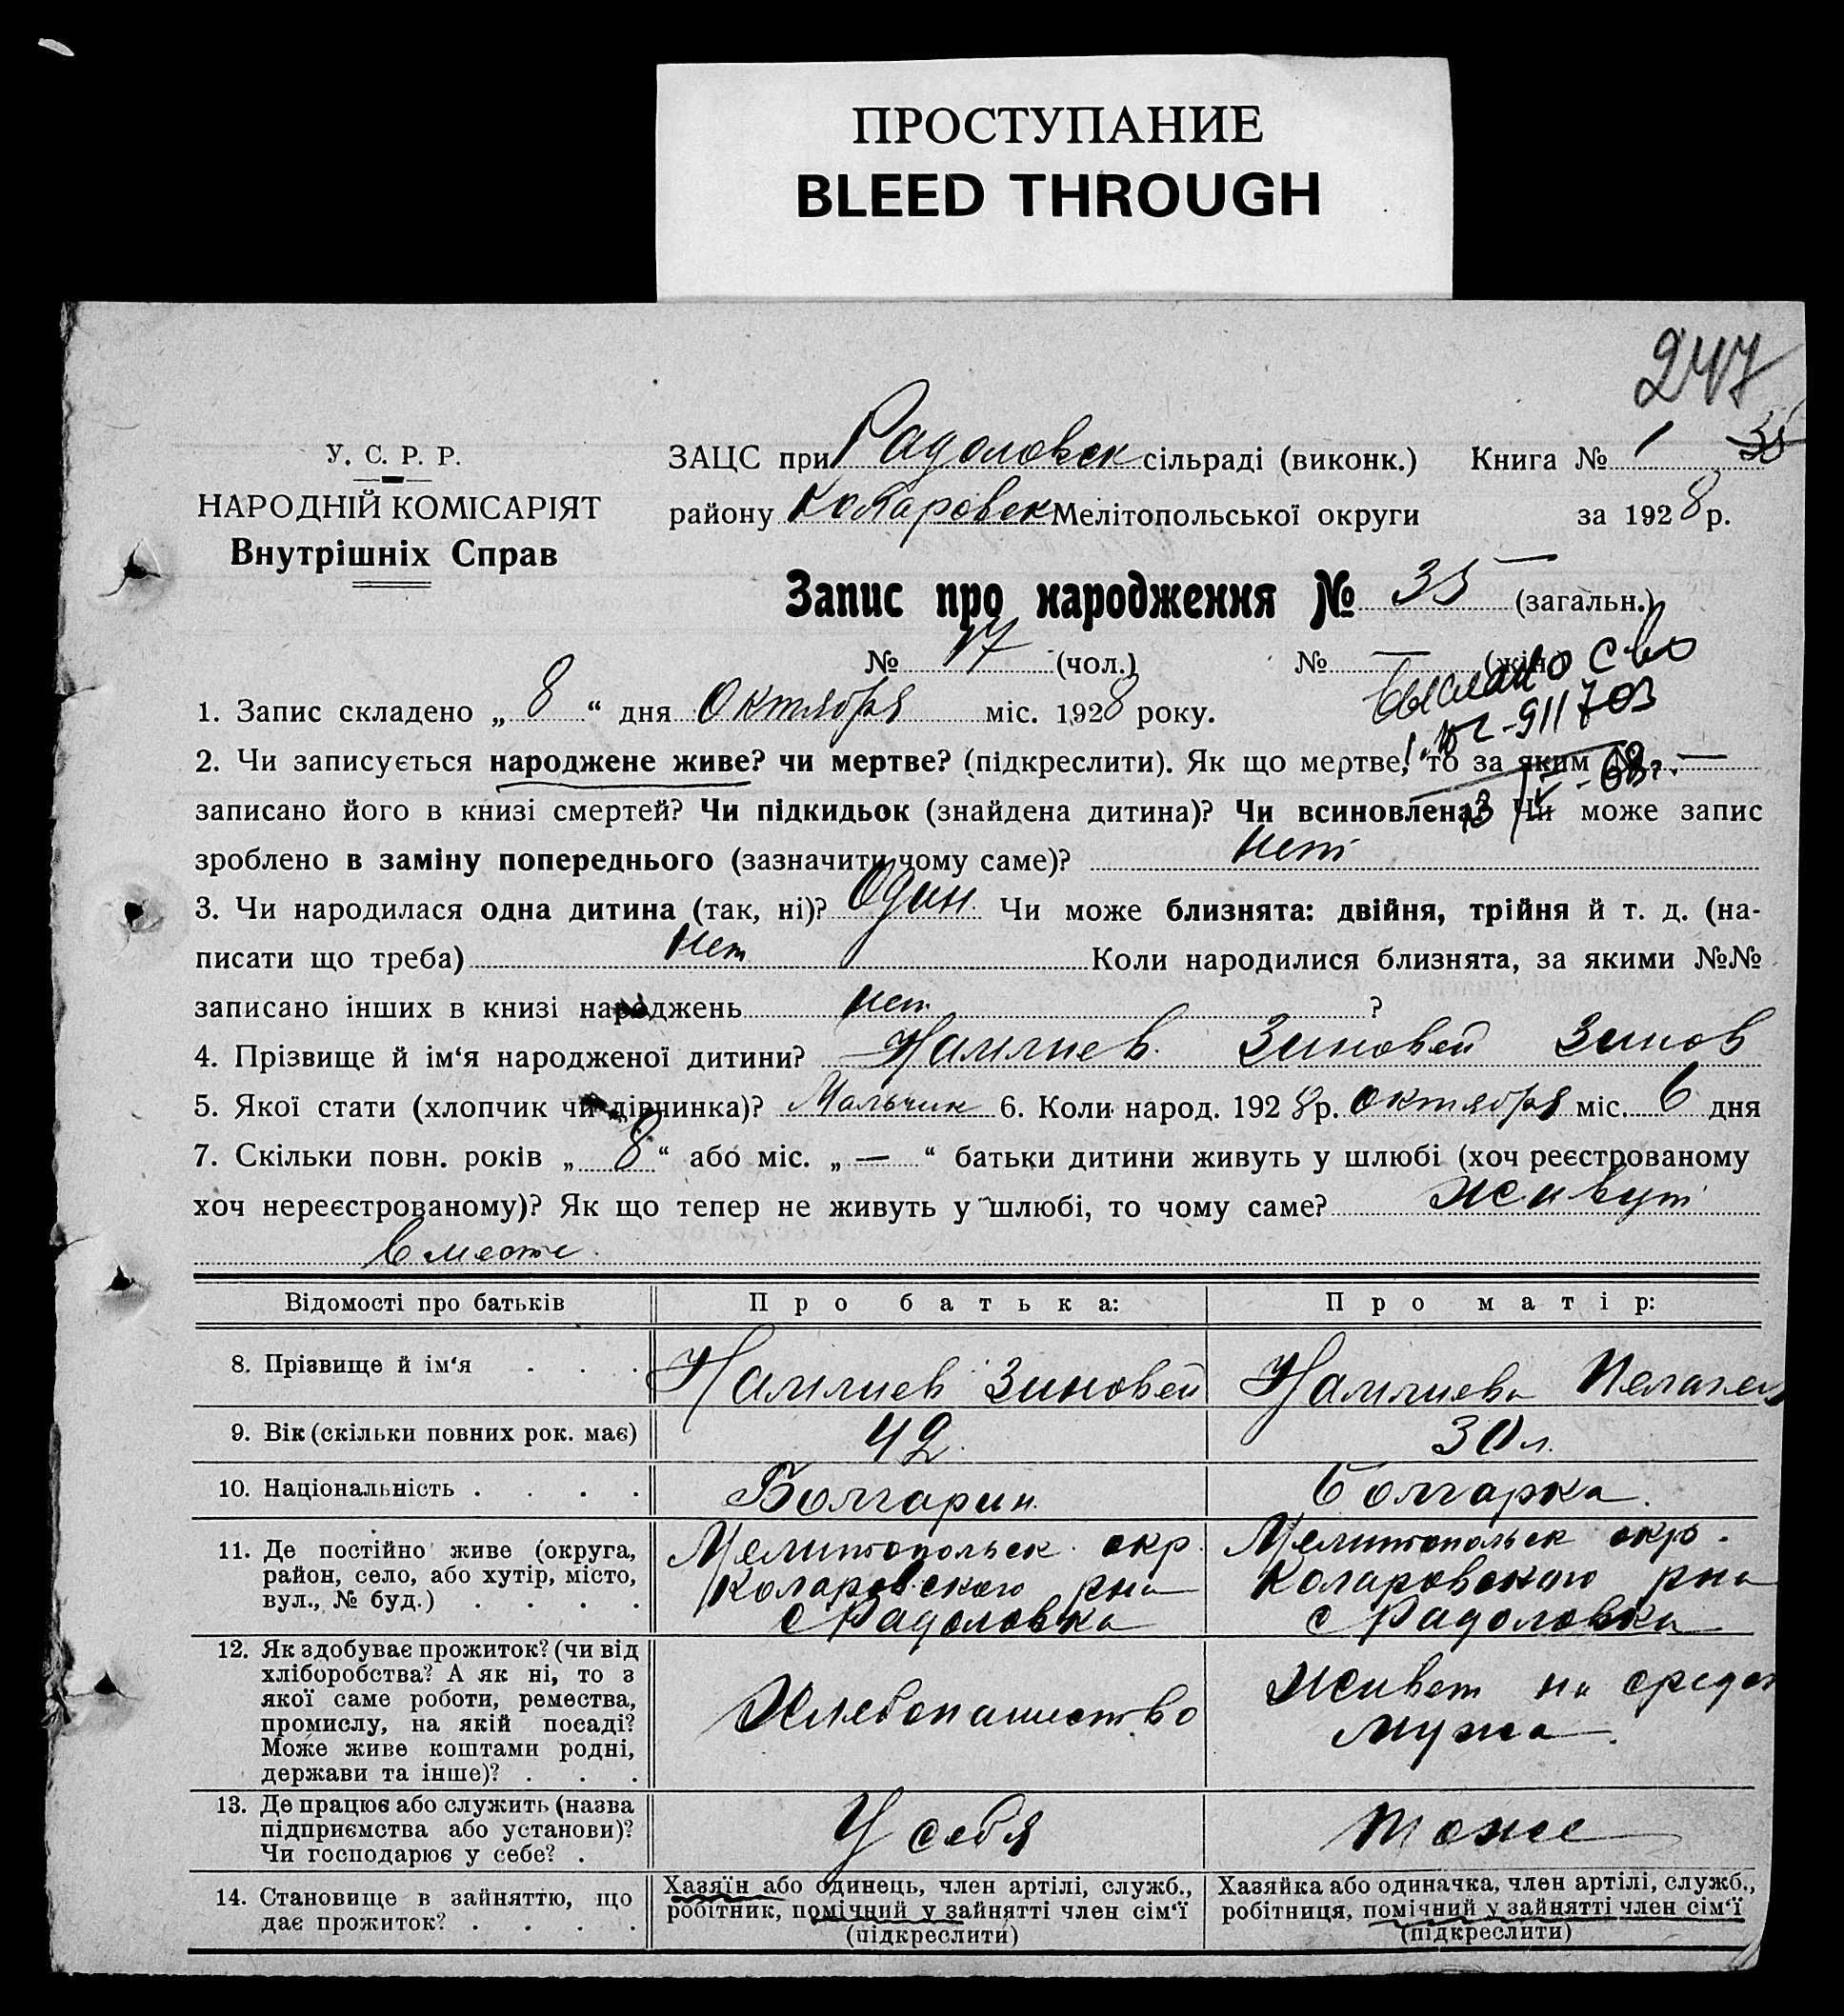 ПРОСТУПАНИЕ
BLEED THROUGH
247
У. С. Р. Р.
НАРОДНІЙ КОМІСАРІЯТ
Внутрішніх Справ
ЗАЦС при Радоловск сільраді (виконк.) Книга № 1 35
району Коларовск Мелітопольської округи за 1928 р.
Запис про народження № 35 (загальн.)
№ 17 (чол.) № — (жін.)
выслано с-во
1. Запис складено „ 8 “ дня Октября міс. 1928 року.
911703
2. Чи записується народжене живе? чи мертве? (підкреслити). Як що мертве, то за яким № —
записано його в книзі смертей? Чи підкидьок (знайдена дитина)? Чи всиновлена? Чи може запис
зроблено в заміну попереднього (зазначити чому саме)? нет
3. Чи народилася одна дитина (так, ні)? Один. Чи може близнята: двійня, трійня й т. д. (на-
писати що треба) нет Коли народилися близнята, за якими №№
записано інших в книзі народжень нет ?
4. Прізвище й ім‘я народженої дитини? Намлиев Зиновей Зинов
5. Якої стати (хлопчик чи дівчинка)? Мальчик 6. Коли народ. 1928 р. октября міс. 6 дня
7. Скільки повн. років „ 8 “ або міс. „ — “ батьки дитини живуть у шлюбі (хоч реєстрованому
хоч нереєстрованому)? Як що тепер не живуть у шлюбі, то чому саме? живут
вместе.
Відомості про батьків Про батька: Про матір:
8. Прізвище й ім‘я . . . Намлиев Зиновей Намлиева Пелагея
9. Вік (скільки повних рок. має) 42. 30 л.
10. Національність . . . . Болгарин. болгарка.
11. Де постійно живе (округа,
район, село, або хутір, місто,
вул., № буд.) . . . .
Мелитопольск. окр.
Коларовского рна
с Радоловка
Мелитопольск окр.
Коларовского рна
с Радоловка
12. Як здобуває прожиток? (чи від
хліборобства? А як ні, то з
якої саме роботи, ремества,
промислу, на якій посаді?
Може живе коштами родні,
держави та інше)? . . .
Хлебопашество
Живет на средст
мужа.
13. Де працює або служить (назва
підприємства або установи)?
Чи господарює у себе? .
У себя
тоже
14. Становище в зайняттю, що
дає прожиток? . . . .
Хазяїн або одинець, член артілі, служб.,
робітник, помічний у зайнятті член сім‘ї
(підкреслити)
Хазяйка або одиначка, член артілі, служб.,
робітниця, помічний у зайнятті член сім‘ї
(підкреслити)